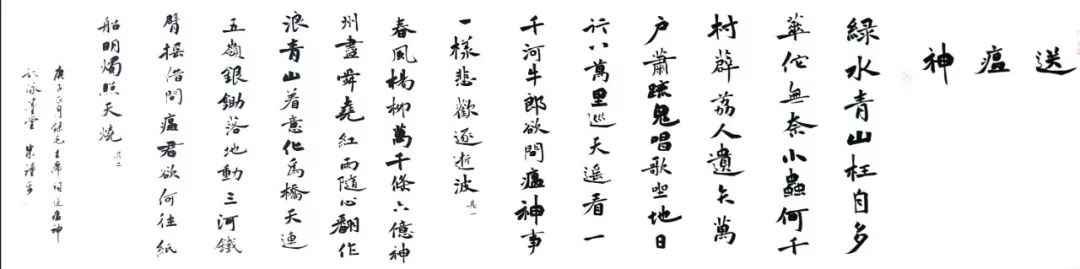 送瘟神
綠水青山枉自多
華佗無奈小蟲何千
村薜荔人遺矢萬
户蕭疏鬼唱歌坐地日
行八萬里巡天遥看一
千河牛郎欲問瘟神事
一樣悲歡逐逝波 其一
春風楊柳萬千條六億神
州盡舜堯紅雨隨心翻作
浪青山着意化爲橋天連
五嶺銀鋤落地動三河鐵
臂摇借問瘟君欲何往紙
船明燭照天燒 其二
庚子正月録毛主席詞送瘟神